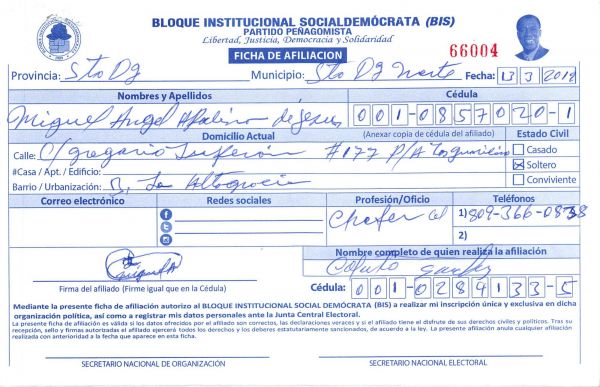 BLOQUE INSTITUCIONAL SOCIALDEMÓCRATA (BIS)
PARTIDO PEÑAGOMISTA
Libertad, Justicia, Democracia y Solidaridad
FICHA DE AFILIACION
66004
Provincia: Sto Dg Municipio: Sto Dg Norte Fecha: 13 3 2019
Nombres y Apellidos Cédula
Miguel Angel de Jesus 001-0857020-1
Domicilio Actual (Anexar copia de cédula del afiliado) Estado Civil
Calle: C/ gregorio #177 P/A Casado
#Casa / Apt. / Edificio: Soltero
Barrio / Urbanización: B, La Conviviente
Correo electrónico Redes sociales Profesión/Oficio Teléfonos
Chofer 1) 809-366-0838
2)
Nombre completo de quien realiza la afiliación
Firma del afiliado (Firme igual que en la Cédula) Cédula: 001-0284133-5
Mediante la presente ficha de afiliación autorizo al BLOQUE INSTITUCIONAL SOCIAL DEMÓCRATA (BIS) a realizar mi inscripción única y exclusiva en dicha
organización política, así como a registrar mis datos personales ante la Junta Central Electoral.
La presente ficha de afiliación es válida si los datos ofrecidos por el afiliado son correctos, las declaraciones veraces y si el titular tiene el disfrute de sus derechos civiles y políticos. Tras su
recepción, sello y firmas autorizadas el afiliado ejercerá todos los derechos y los deberes estatutariamente sancionados, de acuerdo a la ley. La presente afiliación anula cualquier afiliación
realizada con anterioridad a la fecha que aparece en esta ficha.
SECRETARIO NACIONAL DE ORGANIZACIÓN SECRETARIO NACIONAL ELECTORAL